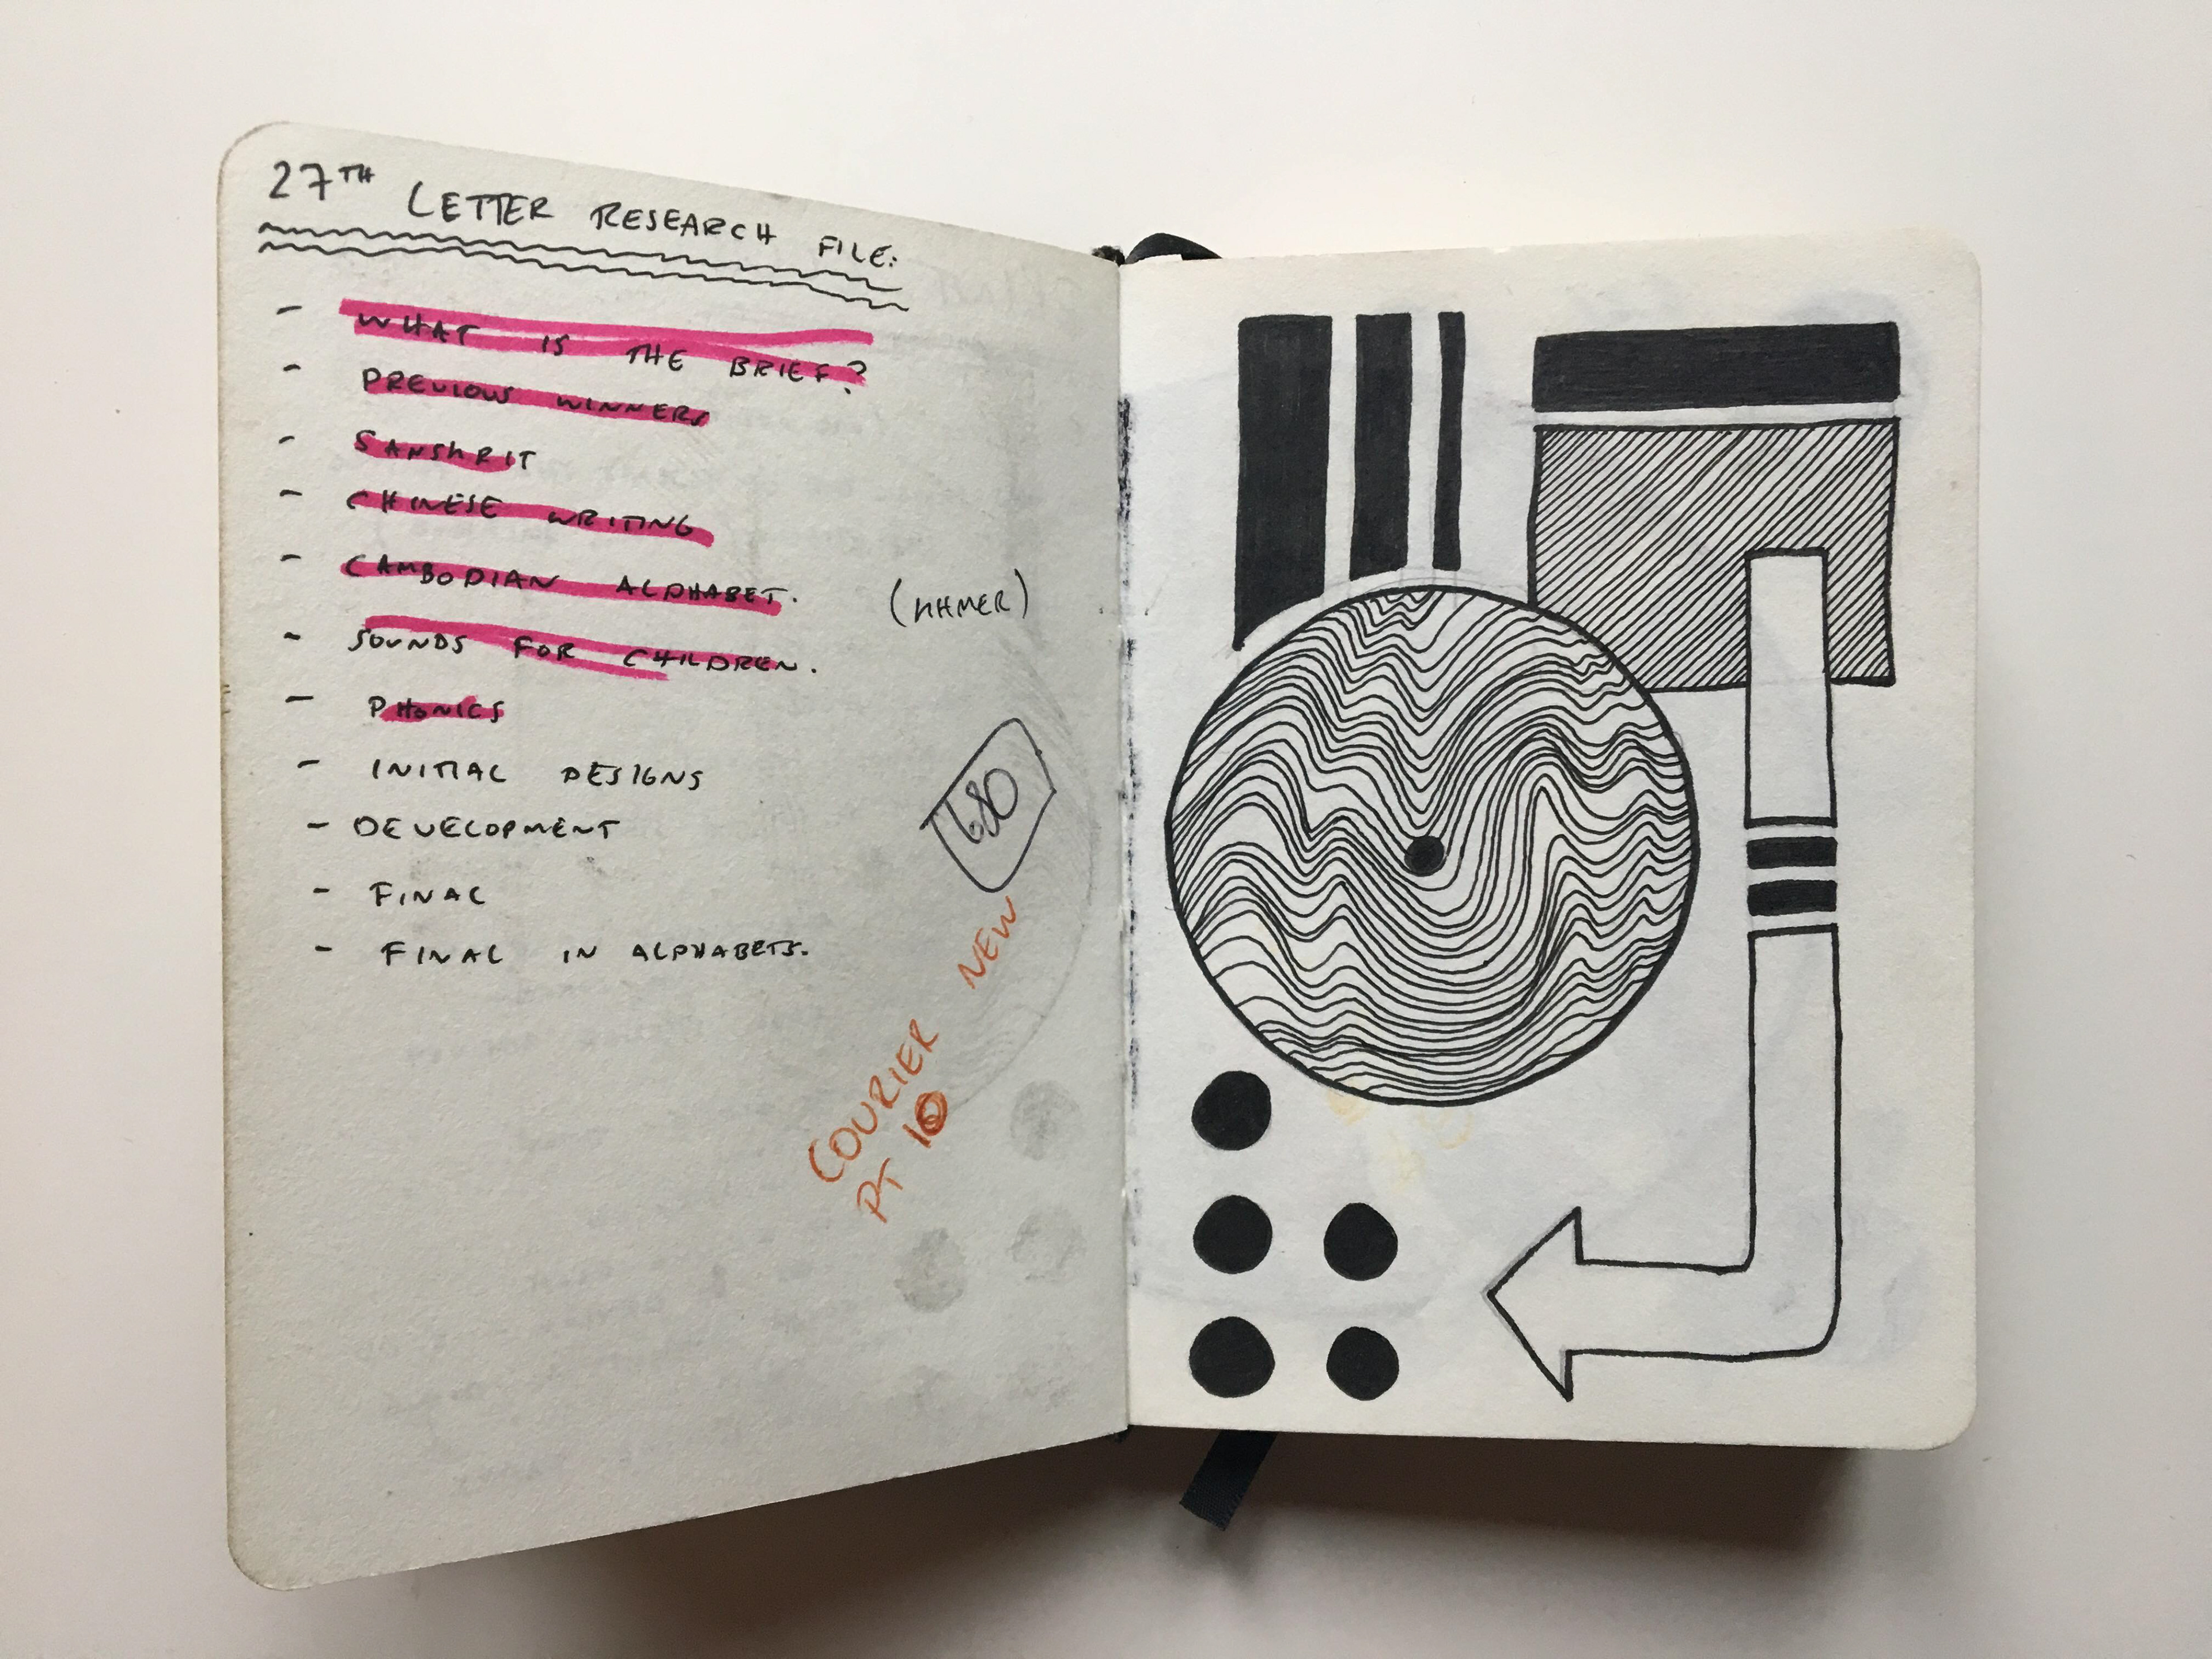 27TH LETTER RESEARCH FILE:
- WHAT IS THE BRIEF?
- PREVIOUS WINNERS
- SANSKRIT
- CHINESE WRITING
- CAMBODIAN ALPHABET. (KHMER)
- SOUNDS FOR CHILDREN.
- PHONICS
- INITIAL DESIGNS
- DEVELOPMENT
- FINAL
- FINAL IN ALPHABETS.
680
COURIER NEW
PT 10